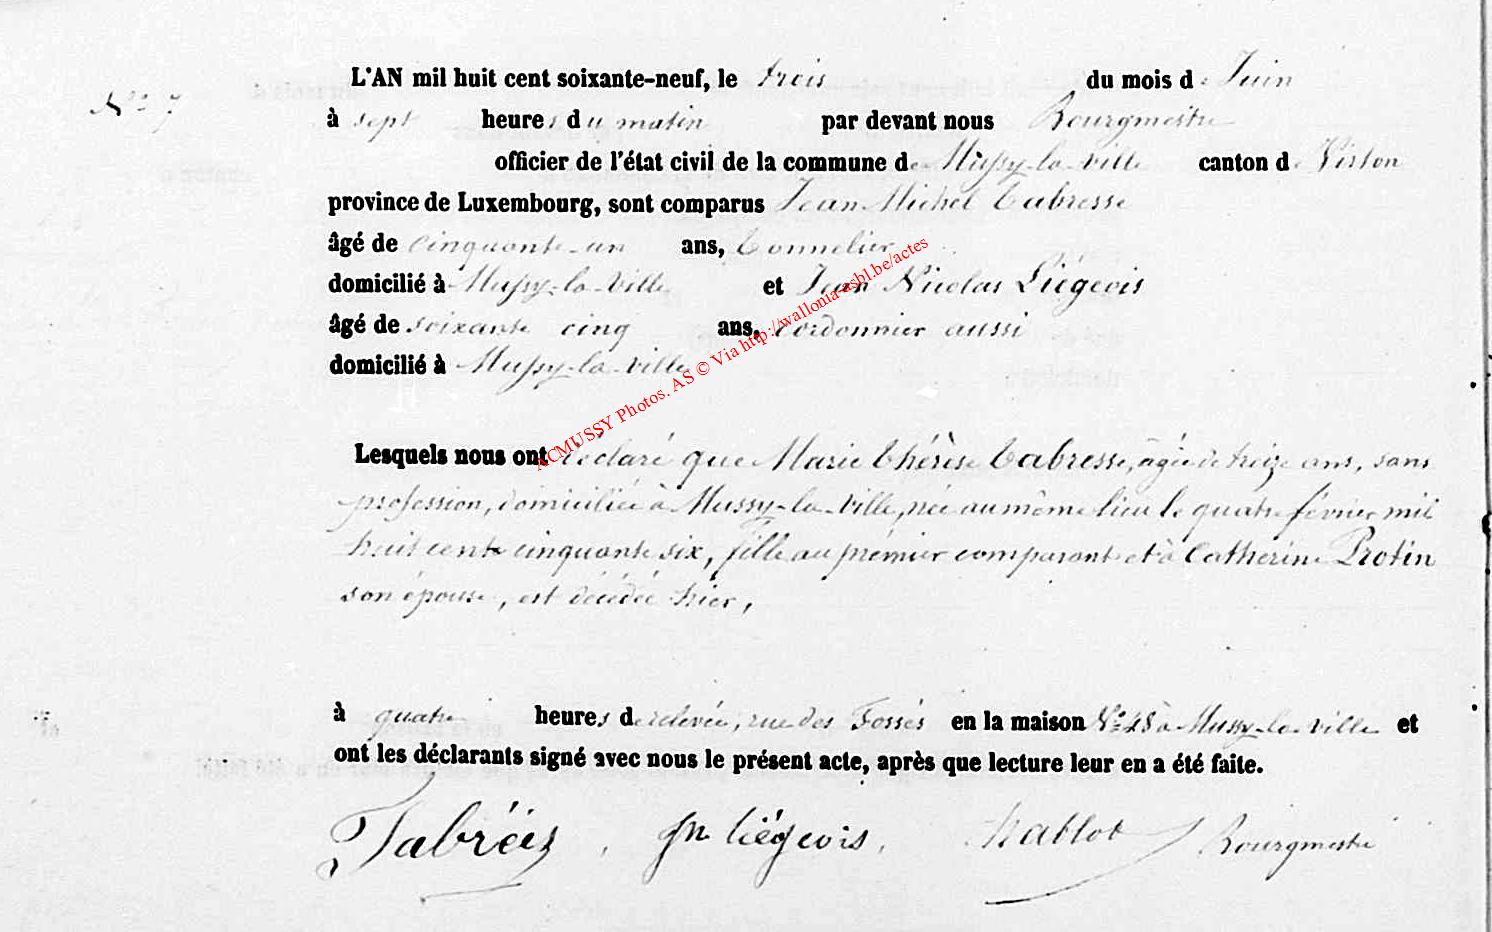 L'AN mil huit cent soixante-neuf, le trois du mois de Juin
N° 7
à sept heures du matin par devant nous Bourgmestre
officier de l'état civil de la commune de Mussy-la-ville canton de Virton
province de Luxembourg, sont comparus Jean Michel Tabresse
âgé de cinquante-un ans, Tonnelier
domicilié à Mussy-la-Ville et Jean Nicolas Liégeois
âgé de soixante cinq ans, cordonnier aussi
domicilié à Mussy-la-ville
ACMUSSY Photos. AS © Via http://wallonia-asbl.be/actes
Lesquels nous ont déclaré que Marie Thérèse Tabresse, âgée de treize ans, sans
profession, domiciliée à Mussy-la-Ville, née au même lieu le quatre février mil
huit cent cinquante six, fille au prémier comparant et à Catherine Protin
son épouse, est décédée hier,
à quatre heures de relevée, rue des Fossés en la maison N° 48 à Mussy-la-ville et
ont les déclarants signé avec nous le présent acte, après que lecture leur en a été faite.
Jn Liégeois, Bourgmestre